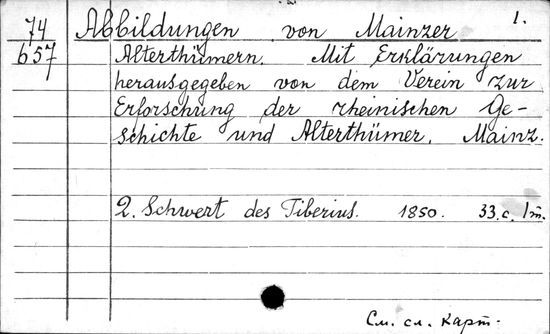 74 Abbildungen von Mainzer 1.
657 Alterthümern. Mit Erklärungen
herausgegeben von dem Verein zur
Erforschung der rheinischen Ge-
schichte und Alterthümer. Mainz.
2. Schwert des Tiberius. 1850. 33.c. 1т.
См. сл. карт.